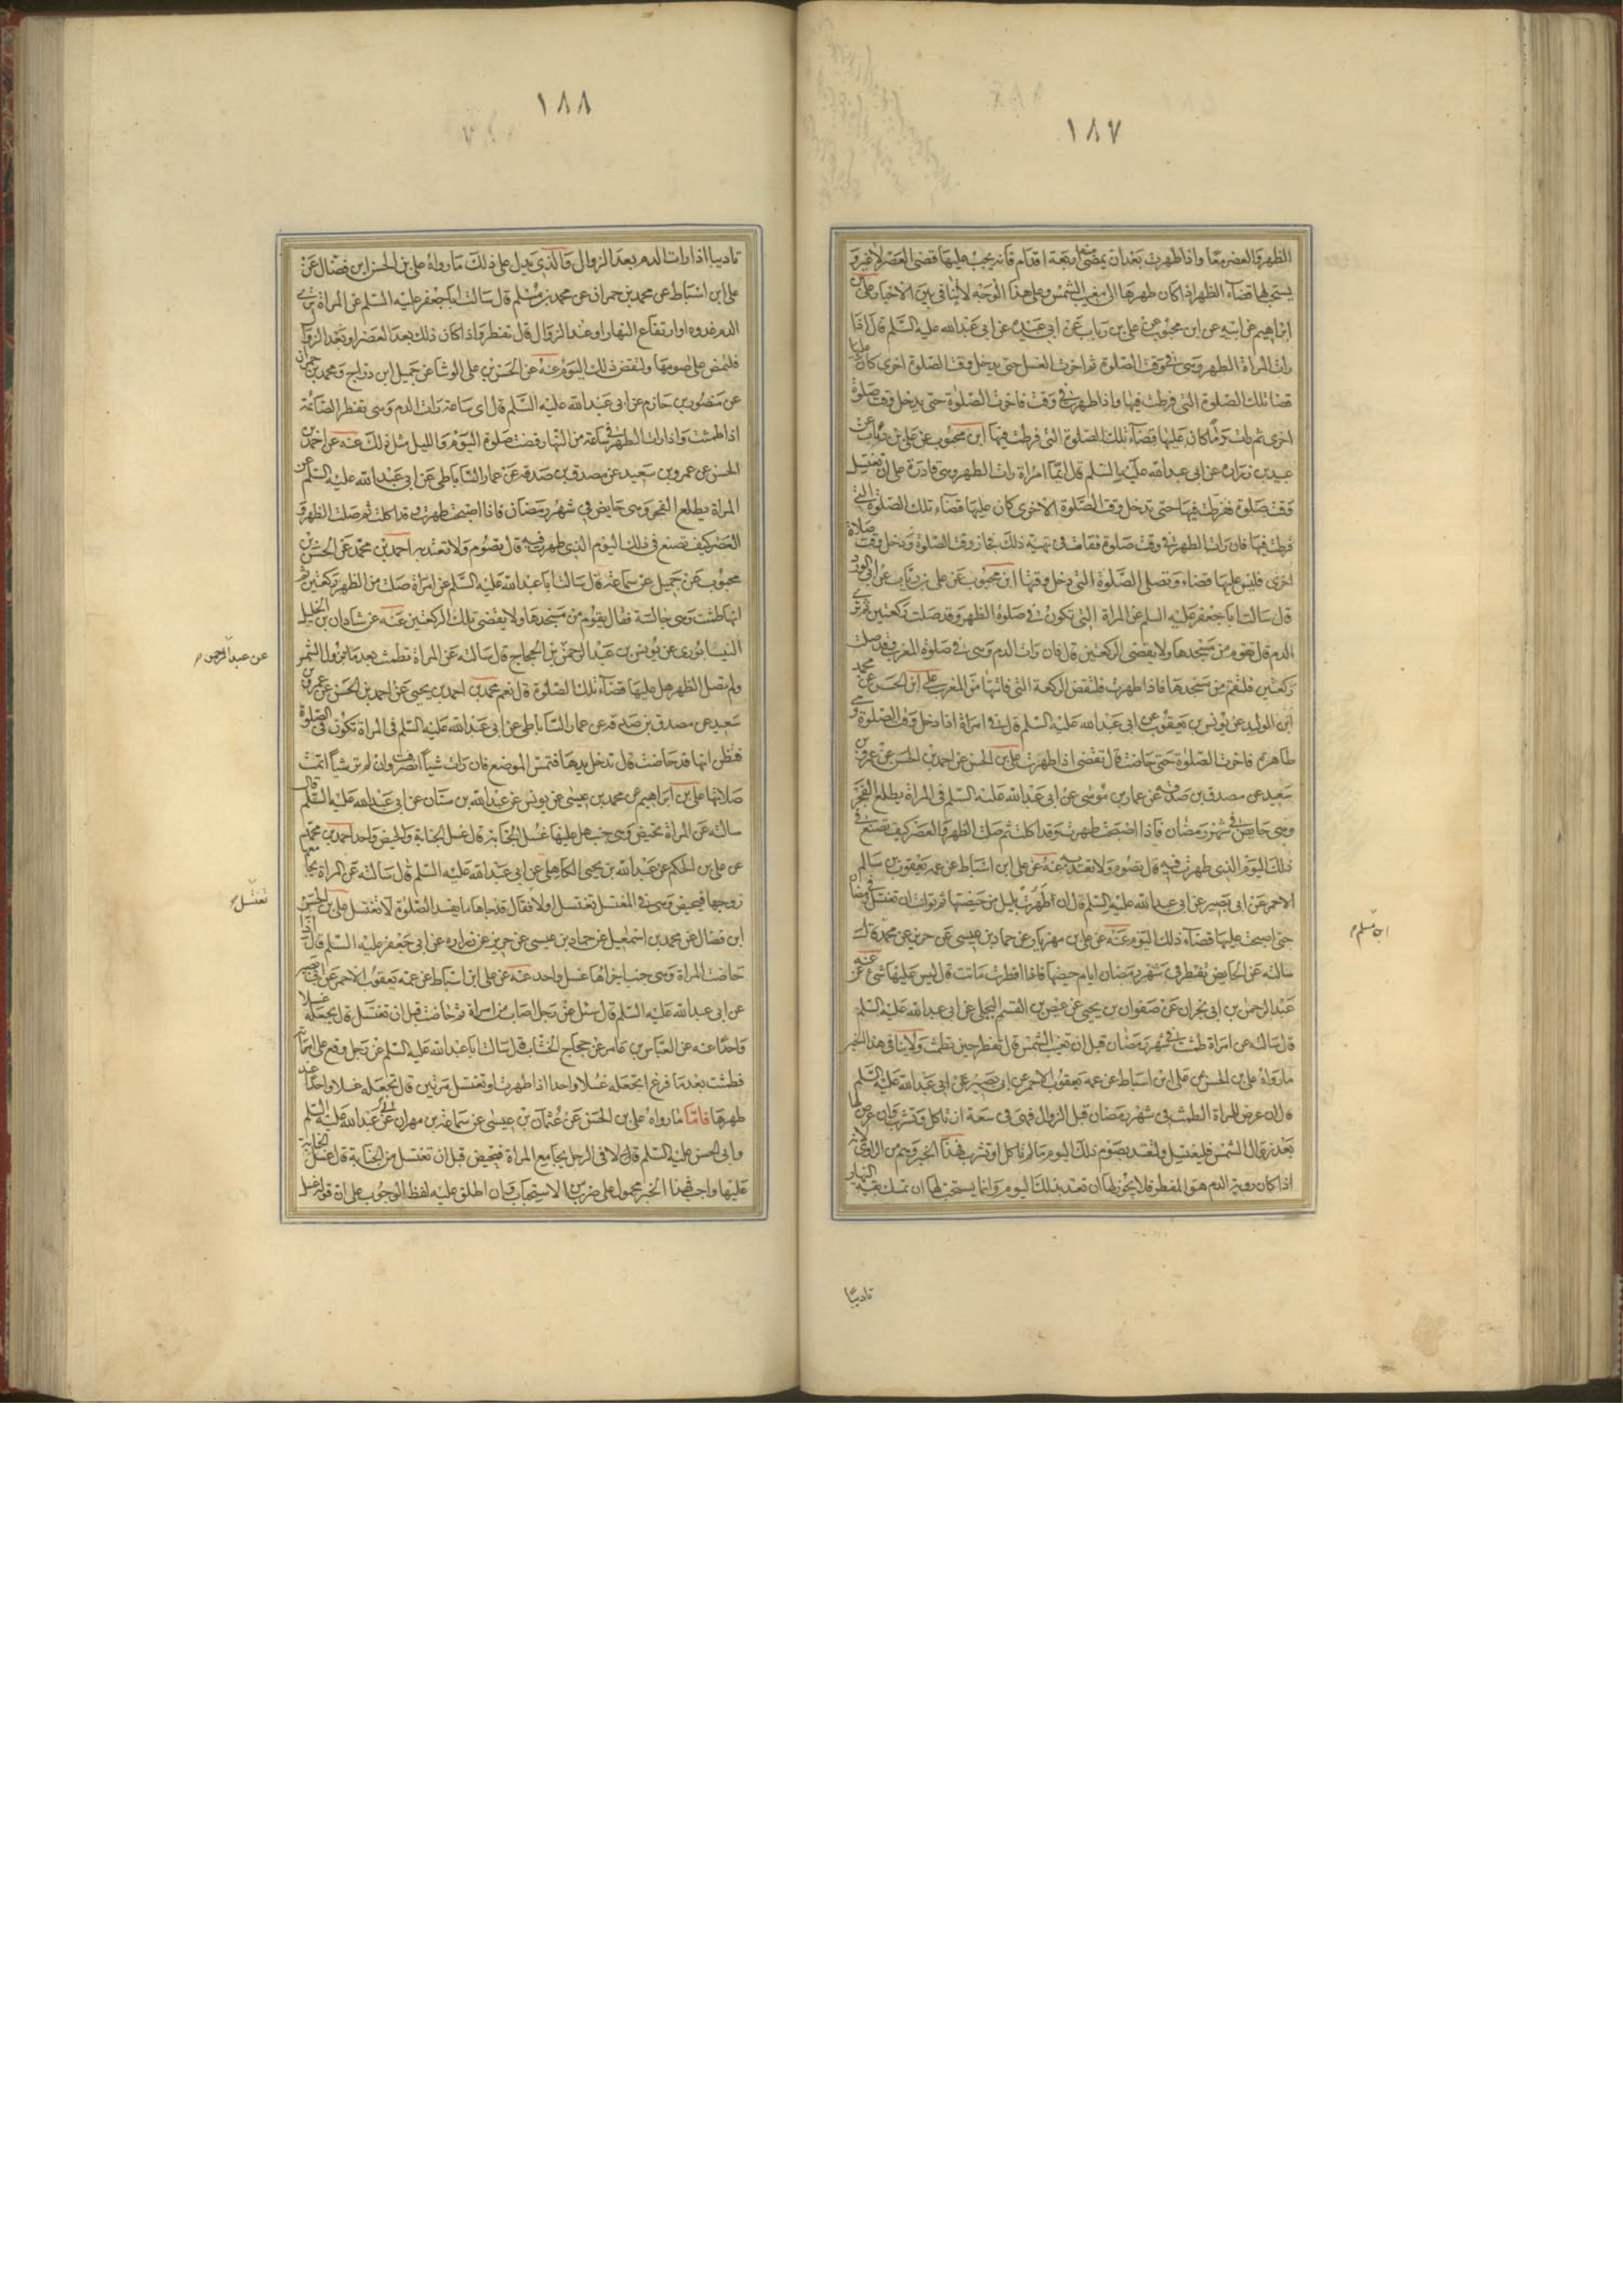 ١٨٧
الظهر والعصر معا واذا طهرت بعد ان يمضى اربعة اقدام فانه يجب عليها قضى العصر لا غير و
يستحب لها قضاء الظهر اذا كان طهرها الى مغيب الشمس وعلى هذا الوجه لا تنافى بين الاخبار على بن
ابراهيم عن ابيه عن ابن محبوب عن على بن رياب عن ابى عبيدة عن ابى عبدالله عليه السلم قال اذا
رات المراة الطهر وهى فى وقت الصلوة ثم اخرت الغسل حتى يدخل وقت الصلوة اخرى كان عليها
قضا تلك الصلوة التى فرطت فيها واذا طهرت فى وقت فاخرت الصلوة حتى يدخل وقت صلوة
اخرى ثم رات دما كان عليها قضاء تلك الصلوة التى فرطت فيها ابن محبوب عن على بن رياب عن
عبيد بن زرارة عن ابى عبدالله عليه السلم قال ايما امراة رات الطهر وهى قادرة على ان تغتسل
وقت صلوة ففرطت فيها حتى تدخل وقت الصلوة الاخرى كان عليها قضاء تلك الصلوة التى
فرطت فيها فان رات الطهر فى وقت صلوة فقامت فى تهية ذلك فجاز وقت الصلوة ودخل وقت صلاة
اخرى فليس عليها قضاء وتصلى الصلوة التى دخل وقتها ابن محبوب عن على بن رياب عن ابى الورد
قال سالت ابا جعفر عليه السلم عن المراة التى تكون فى صلوة الظهر وقد صلت ركعتين ثم ترى
الدم قال تقوم من مسجدها ولا يقضى الركعتين قال فان رات الدم وهى فى صلوة المغرب وقد صلت
ركعتين فلتقم من مسجدها فاذا طهرت فلتقض الركعة التى فاتتها من المغرب على بن الحسن عن محمد
ابن الوليد عن يونس بن يعقوب عن ابى عبدالله عليه السلم قال فى امراة اذا دخل وقت الصلوة وهى
طاهرة فاخرت الصلوة حتى حاضت قال تقضى اذا طهرت على بن الحسن عن احمد بن الحسن عن عمرو بن
سعيد عن مصدق بن صدقه عن عمار بن موسى عن ابى عبدالله عليه السلم فى المراة يطلع الفجر
وهى حايض فى شهر رمضان فاذا اصبحت طهرت وقد اكلت ثم صلت الظهر والعصر كيف تصنع فى
ذلك اليوم الذى طهرت فيه قال تصوم ولا تعتد به عنه عن على ابن اسباط عن عمه يعقوب بن سالم
الاحمر عن ابى بصير عن ابى عبدالله عليه السلم قال ان طهرت بليل من حيضتها ثم توانت ان تغتسل فى رمضان
حتى اصبحت عليها قضاء ذلك اليوم عنه عن على بن مهزيار عن حماد بن عيسى عن حريز عن محمد قال
ابن مسلم
سالته عن الحايض تفطر فى شهر رمضان ايام حيضها فاذا افطرت ماتت قال ليس عليها شئ عنه عن
عبدالرحمن بن ابى نجران عن صفوان بن يحيى عن عيص بن القسم البجلى عن ابى عبدالله عليه السلم
قال سالته عن امراة طمثت فى شهر رمضان قبل ان تغيب الشمس قال تفطر حين تطمث ولا ينافى هذا الخبر
ما رواه على بن الحسن عن على ابن اسباط عن عمه يعقوب الاحمر عن ابى بصير عن ابى عبدالله عليه السلم
قال ان عرض للمراة الطمث فى شهر رمضان قبل الزوال فهى فى سعة ان تاكل وتشرب وان عرض لها
بعد زوال الشمس فليغتسل ولتعتد بصوم ذلك اليوم ما لم تاكل او تشرب فهذا الخبر وهم من الراوى لانه
اذا كان روية الدم هو المفطر فلا يجوز لها ان تعتد بذلك اليوم وانما يستحب لها ان تمسك بقية النهار
تاديبا
١٨٨
تاديبا اذا رات الدم بعد الزوال والذى يدل على ذلك ما رواه على بن الحسن ابن فضال عن
على ابن اسباط عن محمد بن حمران عن محمد بن مسلم قال سالت ابا جعفر عليه السلم عن المراة ترى
الدم غدوه او ارتفاع النهار او عند الزوال قال تفطر واذا كان ذلك بعد العصر او بعد الزوال
فلتمض على صومها ولتقض ذلك اليوم عنه عن الحسن بن على الوشا عن جميل ابن دراج ومحمد بن حمران
عن منصور بن حازم عن ابى عبدالله عليه السلم قال اى ساعة رات الدم وهى تفطر الصائمة
اذا طمثت واذا رات الطهر فى ساعة من النهار قضت صلوة اليوم والليل مثل ذلك عنه عن احمد بن
الحسن عن عمرو بن سعيد عن مصدق بن صدقه عن عمار الساباطى عن ابى عبدالله عليه السلم عن
المراة يطلع الفجر وهى حايض فى شهر رمضان فاذا اصبحت طهرت وقد اكلت ثم صلت الظهر و
العصر كيف تصنع فى ذلك اليوم الذى طهرت فيه قال تصوم ولا تعتد به احمد بن محمد عن الحسن بن
محبوب عن جميل عن سماعة قال سالت ابا عبدالله عليه السلم عن امراة صلت من الظهر ركعتين ثم
انها طمثت وهى جالسة فقال يقوم من مسجدها ولا يقضى تلك الركعتين عنه عن شاذان بن الخليل
النيسابورى عن يونس بن عبدالرحمن بن الحجاج قال سالته عن المراة تطمث بعد ما تزول الشمس
عن عبدالرحمن
ولم تصل الظهر هل عليها قضاء تلك الصلوة قال نعم محمد بن احمد بن يحيى عن احمد بن الحسن عن عمرو بن
سعيد عن مصدق بن صدقه عن عمار الساباطى عن ابى عبدالله عليه السلم فى المراة تكون فى الصلوة
فتظن انها قد حاضت قال تدخل يدها فتمس الموضع فان رات شيا انصرفت وان لم تر شيا اتمت
صلاتها على بن ابراهيم عن محمد بن عيسى عن يونس عن عبدالله بن سنان عن ابى عبدالله عليه السلم قال
سالته عن المراة تحيض وهى جنب هل عليها غسل الجنابة قال غسل الجنابة والحيض واحد احمد بن محمد
عن على بن الحكم عن عبدالله بن يحيى الكاهلى عن ابى عبدالله عليه السلم قال سالته عن المراة يجامعها
زوجها فتحيض وهى فى المغتسل تغتسل او لا فقال قد جاءها ما يفسد الصلوة لا تغتسل على بن الحسن
تغتسل
ابن فضال عن محمد بن اسمعيل عن حماد بن عيسى عن حريز عن زرارة عن ابى جعفر عليه السلم قال اذا
حاضت المراة وهى جنب اجزاها غسل واحد عنه عن على ابن اسباط عن عمه يعقوب الاحمر عن ابى بصير
عن ابى عبدالله عليه السلم قال سئل عن رجل اصاب من امراة ثم حاضت قبل ان تغتسل قال تجعله غسلا
واحدا عنه عن العباس بن عامر عن حجاج الخشاب قال سالت ابا عبدالله عليه السلم عن رجل وقع على امراته
فطمثت بعد ما فرغ اتجعله غسلا واحدا اذا طهرت او تغتسل مرتين قال تجعله غسلا واحدا عند
طهرها فاما ما رواه على بن الحسن عن عثمان بن عيسى عن سماعة بن مهران عن ابى عبدالله عليه السلم
وابى الحسن عليه السلم قالا فى الرجل يجامع المراة فتحيض قبل ان تغتسل من الجنابة قال غسل الجنابة
عليها واجب فهذا الخبر محمول على ضرب من الاستحباب وان اطلق عليه لفظ الوجوب على ان قوله غسل